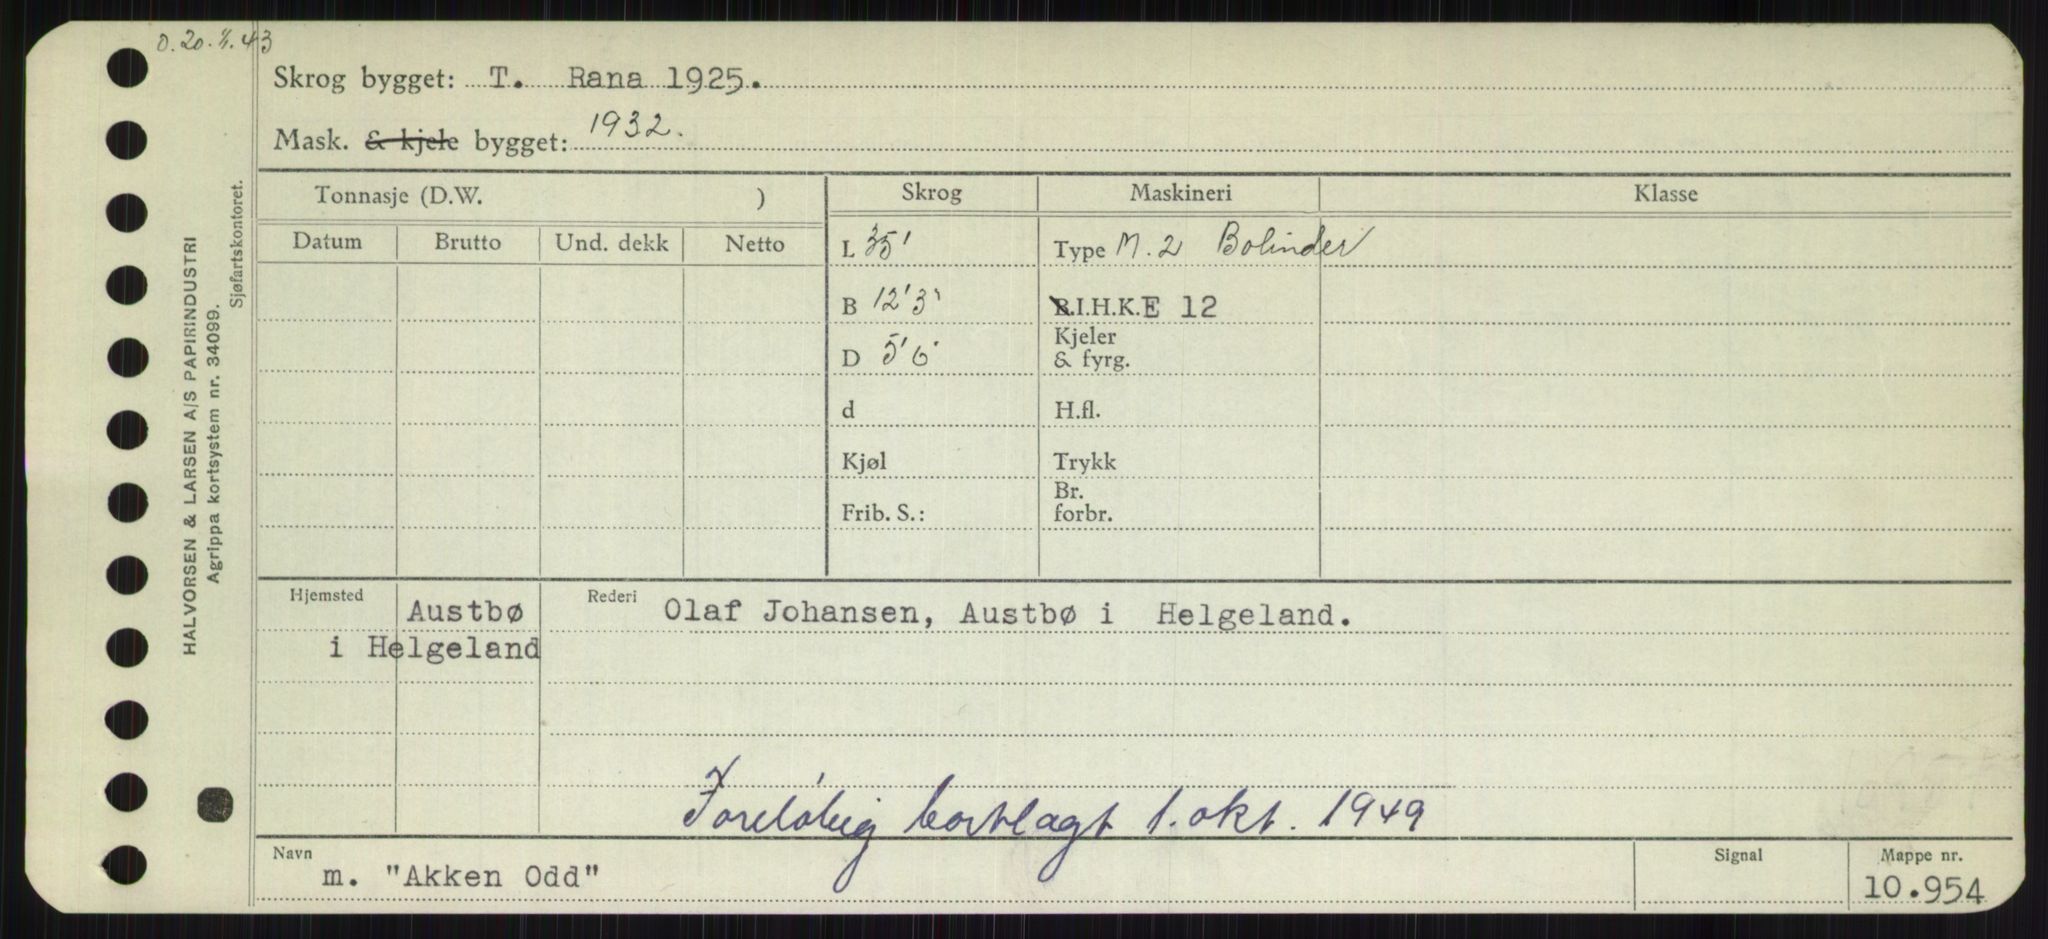 0.20.4.43
Skrog bygget: T. Rana 1925.
Mask. & kjele bygget: 1932.
HALVORSEN & LARSEN A/S PAPIRINDUSTRI
Agrippa kortsystem nr. 34099.
Sjøfartskontoret.
Tonnasje (D.W. )
Skrog
Maskineri
Klasse
Datum
Brutto
Und. dekk
Netto
L 35'
Type M. 2 Bolinder
B 12'3"
B.I.H.K.E 12
D 5'6"
Kjeler
& fyrg.
d
H.fl.
Kjøl
Trykk
Frib. S.:
Br.
forbr.
Hjemsted Austbø
i Helgeland
Rederi Olaf Johansen, Austbø i Helgeland.
Foreløbig bortlagt 1. okt. 1949
Navn
m. "Akken Odd"
Signal
Mappe nr.
10.954